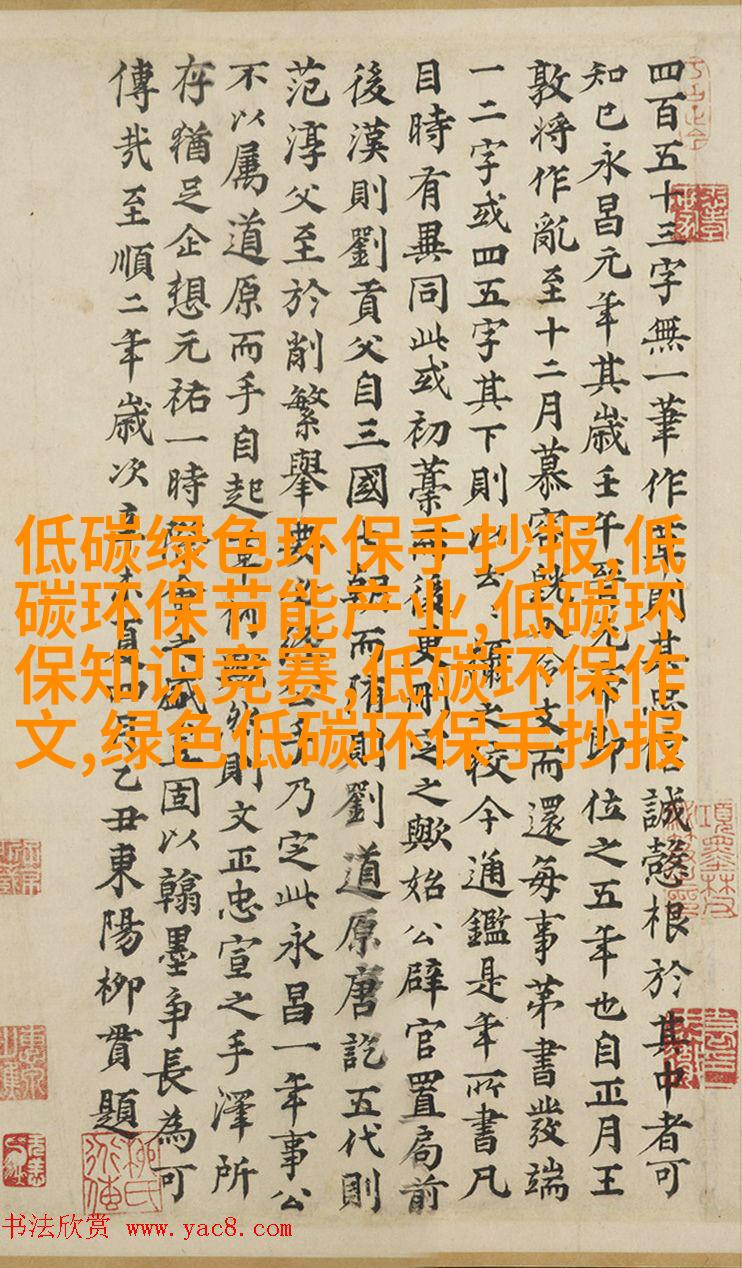 四百五十三字無一筆作草則其忠信誠慤根於其中者可
知已永昌元年其歲壬午晉元帝即位之五年也自正月王
敦將作亂至十二月慕容皝入令支而還每事第書發端
一二字或四五字其下則以之較今通鑑是年所書凡
目時有異同此或初藁而後更刪定之歟始公辟官置局前
後漢則劉貢父自三國七朝而隋則劉道原唐訖五代則
范淳父至於削繁舉要必經公手乃定此永昌一年事公
不以屬道原而手自起草何然則文正忠宣之手澤所
存猶足企想元祐一時會之盛固以翰墨爭長為可
傳哉至順二年歲次辛未夏乙丑東陽柳貫題
低碳绿色环保手抄报,低
碳环保节能产业,低碳环
保知识竞赛,低碳环保作
文,绿色低碳环保手抄报
书法欣赏 www.yac8.com